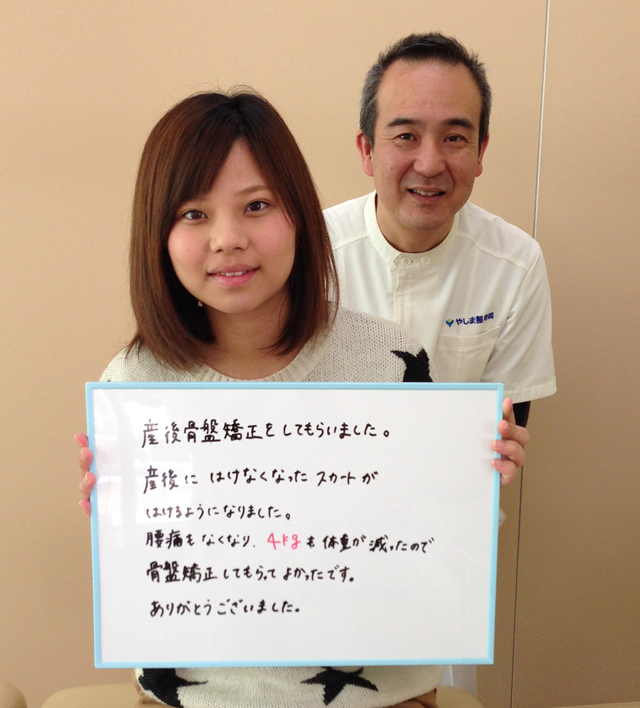 やしま整骨院
産後骨盤矯正をしてもらいました。
産後に はけなくなった スカートが
はけるようになりました。
腰痛もなくなり、4kgも体重が減ったので
骨盤矯正してもらって よかったです。
ありがとうございました。